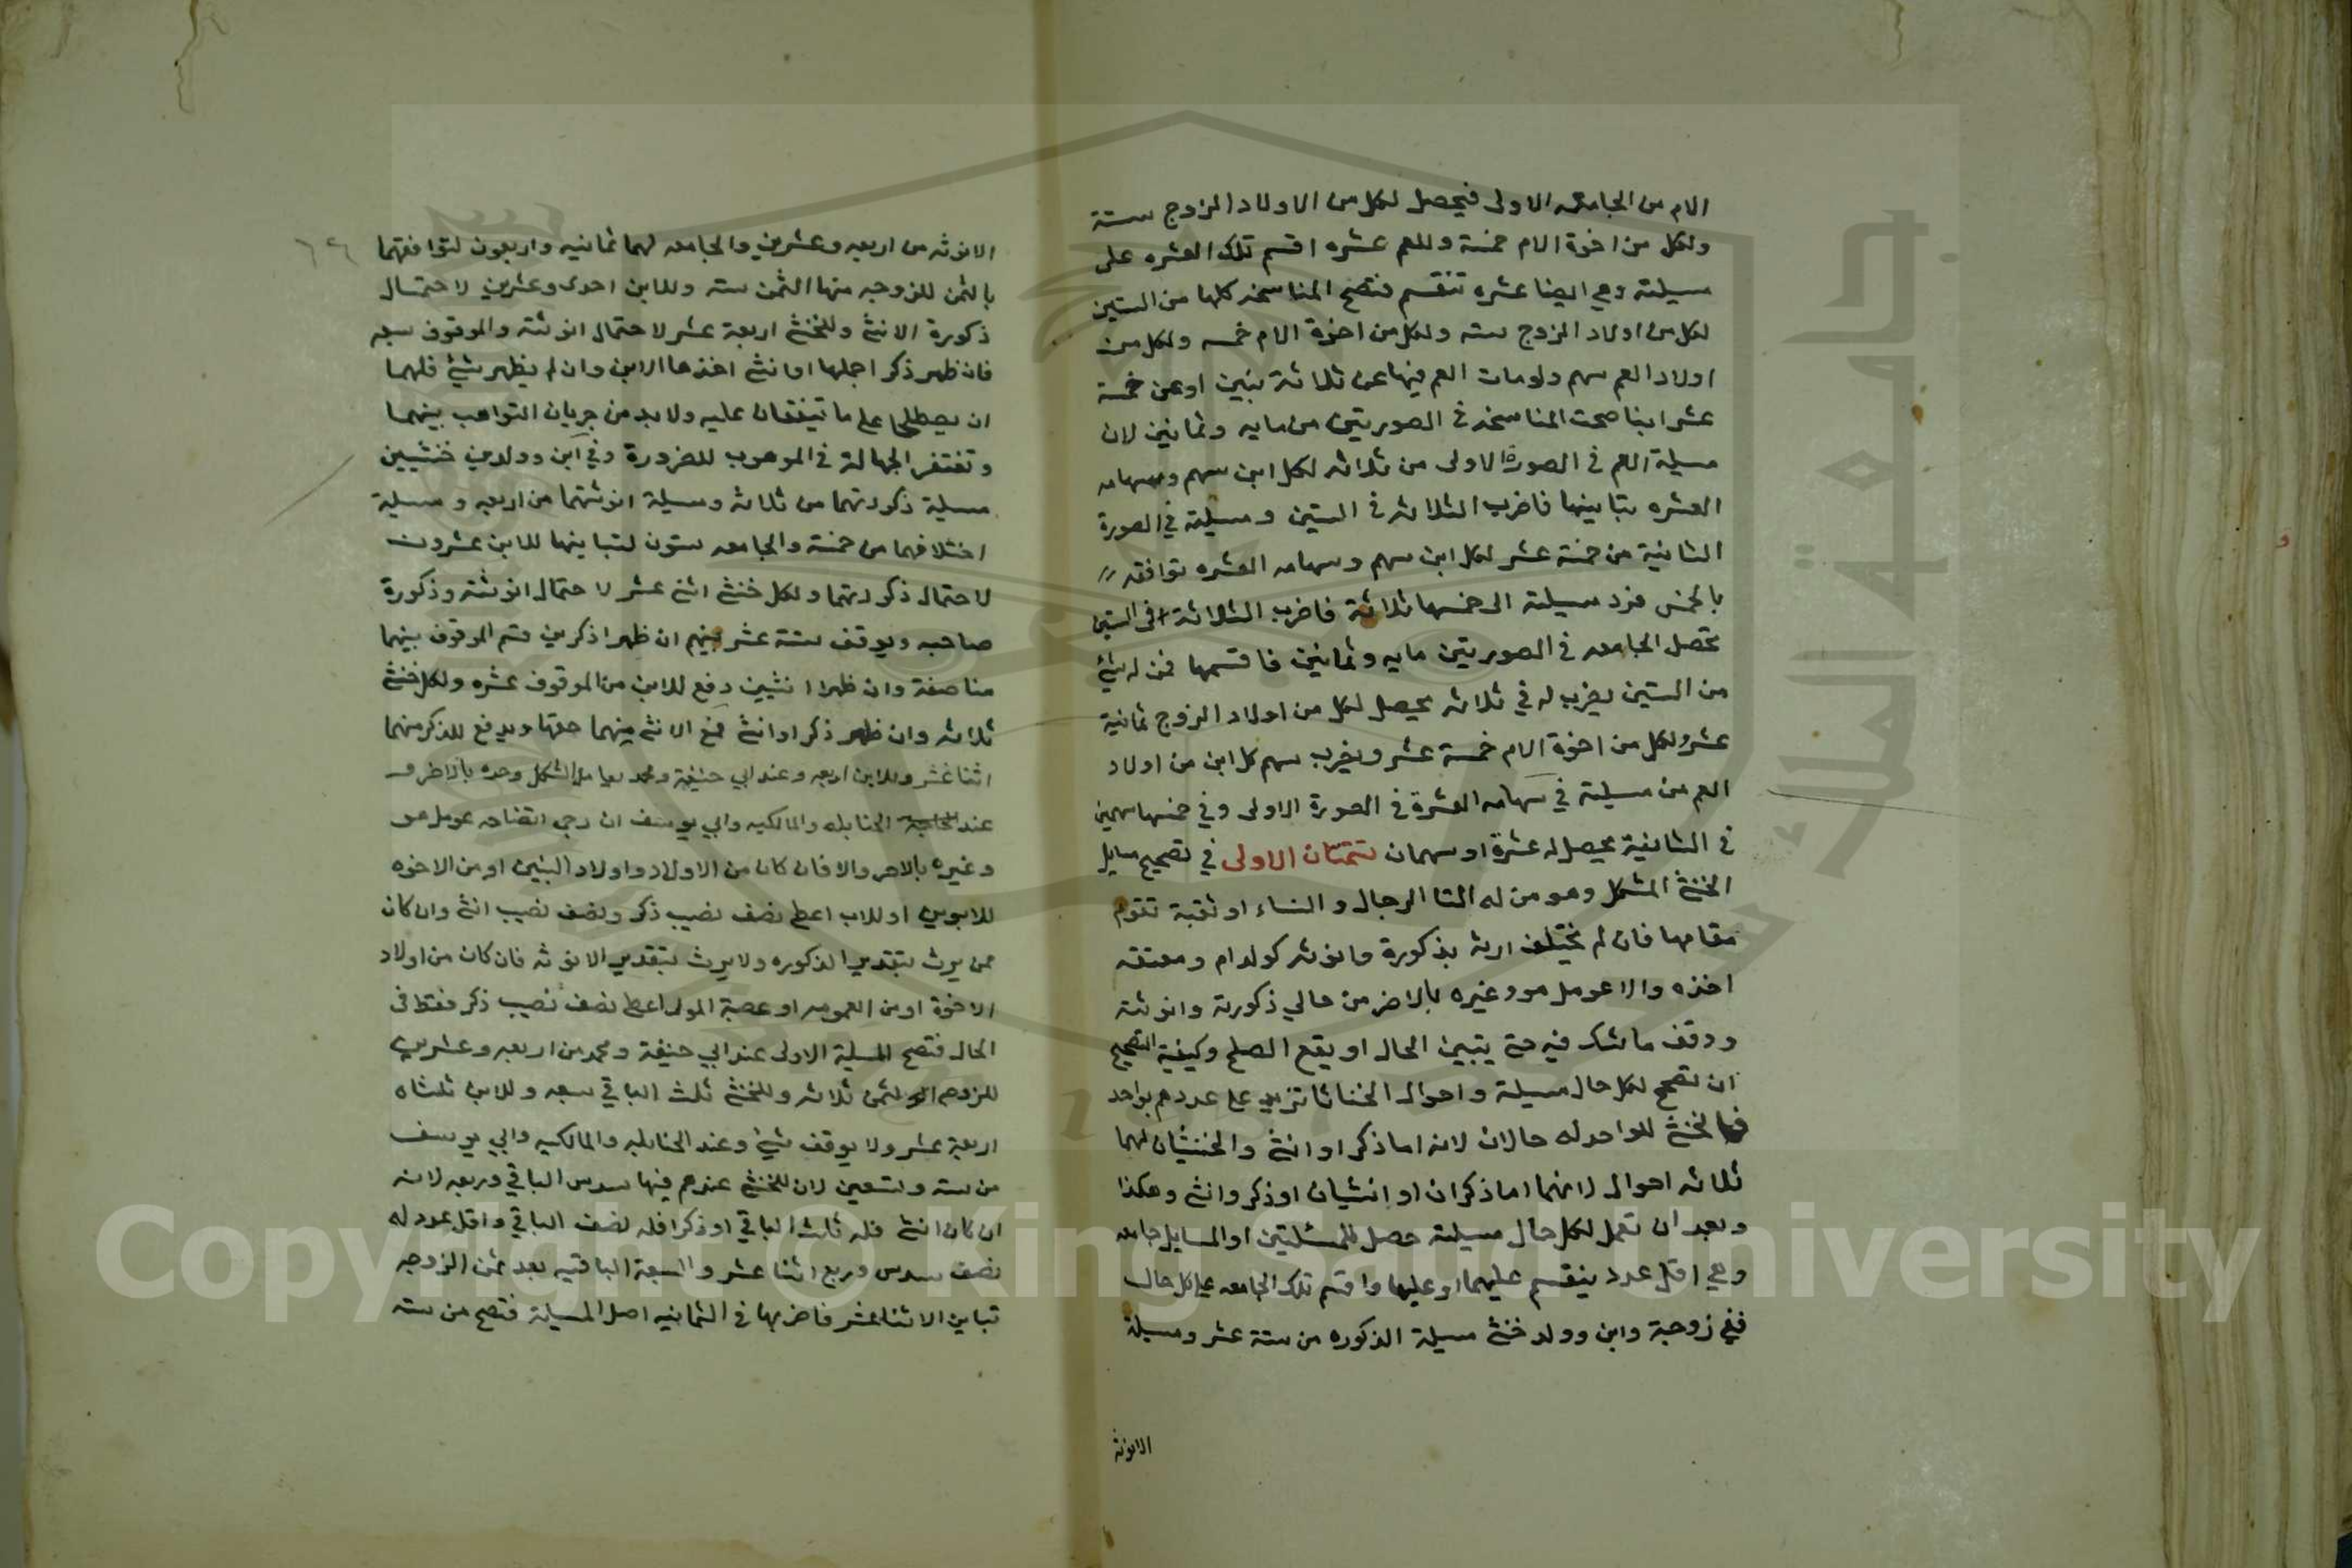 الام من الجامعه الاولى فيحصل لكل من الاولاد الزوج ستة
ولكل من اخوة الام خمسة وللعم عشره اقسم تلك العشره على
مسيلته وهي ايضا عشره تنقسم فتصح المناسخه كلها من الستين
لكل من اولاد الزوج سته ولكل من اخوة الام خمسه ولكل من
اولاد العم سهم ولو مات العم فيها عن ثلاثة بنين او عن خمسة
عشر ابنا صحت المناسخه في الصورتين من مايه وثمانين لان
مسيلة العم في الصورة الاولى من ثلاثه لكل ابن سهم وسهامه
العشره تباينها فاضرب الثلاثه في الستين ومسيلته في الصورة
الثانية من خمسة عشر لكل ابن سهم وسهامه العشره توافقه
بالخمس فرد مسيلته الى خمسها ثلاثة فاضرب الثلاثة في الستين
تحصل الجامعه في الصورتين مايه وثمانين فاقسمها فمن له شئ
من الستين يضرب له في ثلاثه يحصل لكل من اولاد الزوج ثمانية
عشر ولكل من اخوة الام خمسة عشر ويضرب سهم كل ابن من اولاد
العم من مسيلته في سهامه العشرة في الصورة الاولى وفي خمسها سهمين
في الثانية يحصل له عشرة او سهمان تتمتان الاولى في تصحيح مسايل
الخنثى المشكل وهو من له التا الرجال والنساء او ثقبة تقوم
مقامها فان لم يختلف ارثه بذكورة وانوثه كولد ام ومعتقه
اخذه والا عومل هو وغيره بالاضر من حالي ذكورته وانوثته
ووقف ما شك فيه حتى يتبين الحال او يقع الصلح وكيفية التصحيح
ان تصحح لكل حال مسيلة واحوال الخناثا تزيد على عددهم بواحد
فالخنثى الواحد له حالان لانه اما ذكر او انثى والخنثيان لهما
ثلاثه احوال لانهما اما ذكران او انثيان او ذكر وانثى وهكذا
وبعد ان تعمل لكل حال مسيلة حصل للمسئلتين او المسايل جامعه
وهي اقل عدد ينقسم عليهما او عليها واقسم تلك الجامعه على كل حال
ففي زوجة وابن وولد خنثى مسيلة الذكوره من ستة عشر ومسيلة
الانوثه
٦٤
الانوثه من اربعه وعشرين والجامعه لهما ثمانيه واربعون لتوافقهما
بالثمن للزوجه منها الثمن سته وللابن احدى وعشرين لاحتمال
ذكورة الانثى وللخنثى اربعة عشر لاحتمال انوثته والموقوف سبعه
فان ظهر ذكر اجملها او انثى اخذها الابن وان لم يظهر شئ فلهما
ان يصطلحا على ما يتفقان عليه ولا بد من جريان التواهب بينهما
وتغتفر الجهالة في الموهوب للضرورة وفي ابن وولدين خنثيين
مسيلة ذكورتهما من ثلاثه ومسيلة انوثتهما من اربعه ومسيلة
اختلافهما من خمسة والجامعه ستون لتباينها للابن عشرون
لاحتمال ذكورتهما ولكل خنثى اثنى عشر لاحتمال انوثته وذكورة
صاحبه ويوقف ستة عشر بينهم ان ظهرا ذكرين قسم الموقوف بينهما
مناصفة وان ظهرا انثيين دفع للابن من الموقوف عشره ولكل خنثى
ثلاثه وان ظهر ذكر او انثى فمع الانثى منهما حقها ويدفع للذكر منهما
اثنا عشر وللابن اربعه وعند ابي حنيفة ومحمد يعامل المشكل وحده بالاضر و
عند الحنابله والمالكيه وابي يوسف ان رجي اتضاحه عومل هو
وغيره بالاضر والا فان كان من الاولاد واولاد البنين او من الاخوه
للابوين او للاب اعطي نصف نصيب ذكر ونصف نصيب انثى وان كان
ممن يرث بتقدير الذكوره ولا يرث بتقدير الانوثه فان كان من اولاد
الاخوة او من العمومه او عصبة المولى اعطي نصف نصيب ذكر فقط في
الحال فتصح المسيلة الاولى عند ابي حنيفة ومحمد من اربعه وعشرين
للزوجه الثمن ثلاثه وللخنثى ثلث الباقي سبعه وللابن ثلثاه
اربعة عشر ولا يوقف شئ وعند الحنابله والمالكيه وابي يوسف
من سته وتسعين لان للخنثى عندهم فيها سدس الباقي وربعه لانه
ان كان انثى فله ثلث الباقي او ذكرا فله نصف الباقي واقل عدد له
نصف سدس وربع اثنا عشر والسبعة الباقيه بعد ثمن الزوجه
تباين الاثنا عشر فاضربها في الثمانيه اصل المسيلة فتصح من سته
Copyright © King Saud University
جامعة الملك